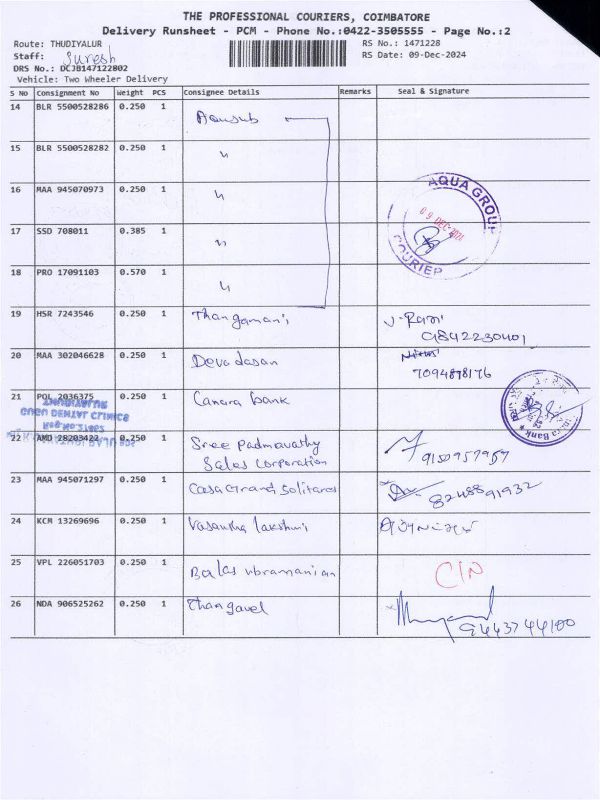 THE PROFESSIONAL COURIERS, COIMBATORE
Delivery Runsheet - PCM - Phone No.:0422-3505555 - Page No.:2
Route: THUDIYALUR RS No.: 1471228
Staff: Suresh RS Date: 09-Dec-2024
DRS No.: DCJB147122802
Vehicle: Two Wheeler Delivery
S No Consignment No Weight PCS Consignee Details Remarks Seal & Signature
14 BLR 5500528286 0.250 1
15 BLR 5500528282 0.250 1 "
16 MAA 945070973 0.250 1 "
AQUA GROUP
09 DEC 2024
COURIER
17 SSD 708011 0.385 1 "
18 PRO 17091103 0.570 1 "
19 HSR 7243546 0.250 1 Thangamani V-Rani
9842230401
20 MAA 302046628 0.250 1 Devadasan
7094878176
21 POL 2036375 0.250 1 Canara bank
DENTAL CLINICS
Reg.No:21962
22 AMD 28203422 0.250 1 Sree Padmavathy
Sales Corporation 9150957957
23 MAA 945071297 0.250 1 Casagrand Solitares 8248891932
24 KCM 13269696 0.250 1 Vasantha lakshmi
25 VPL 226051703 0.250 1 Balasubramanian C/N
26 NDA 906525262 0.250 1 Thangavel
9443744100